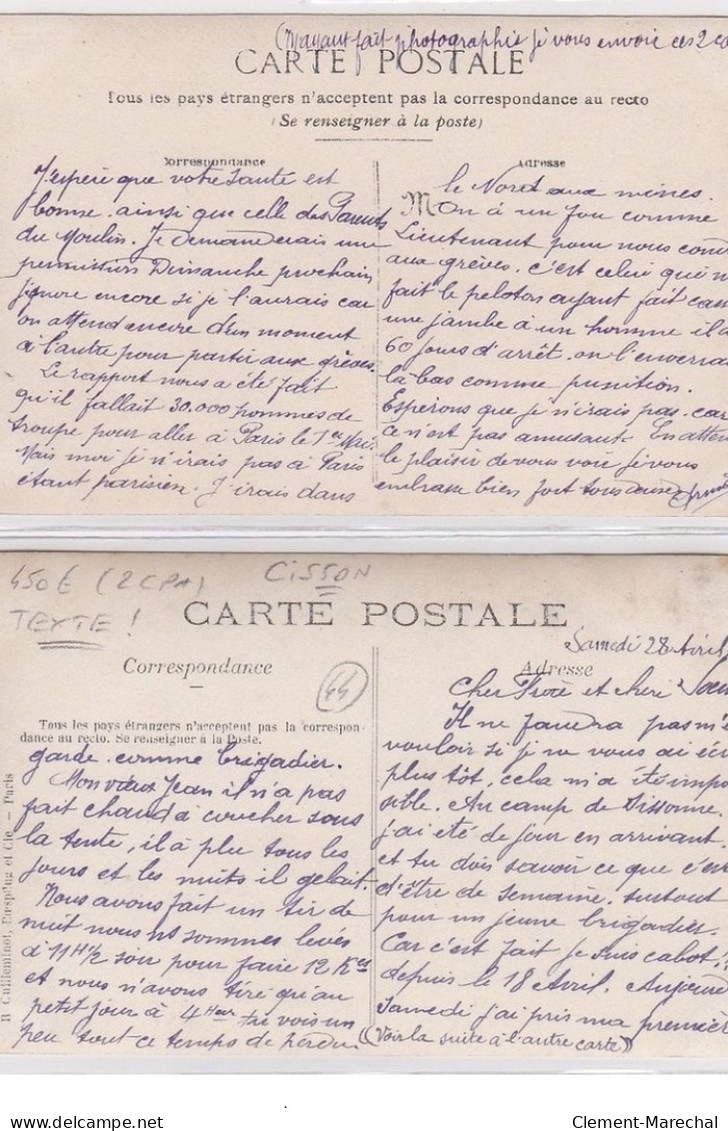 (M'ayant fait photographié je vous envoie ces 2
CARTE POSTALE
Tous les pays étrangers n'acceptent pas la correspondance au recto
(Se renseigner à la poste)
Correspondance
J'espère que votre santé est
bonne. ainsi que celle des Parents
du Moulin. Je demanderais une
permission Dimanche prochain
j'ignore encore si je l'aurais car
on attend encore d'un moment
à l'autre pour partir aux grèves.
Le rapport nous a été fait
qu'il fallait 30.000 hommes de
troupe pour aller à Paris le 1er Mai.
Mais moi je n'irais pas à Paris
étant parisien. J'irais dans
Adresse
le Nord aux mines.
M On à un fou comme
Lieutenant pour nous
aux grèves. c'est celui qui
fait le peloton ayant fait
une jambe à un homme il
60 jours d'arrêt. on l'enverra
là bas comme punition.
Espérons que je n'irais pas. car
ce n'est pas amusant. En
le plaisir de vous voir je vous
embrasse bien fort tous deux
450E (2 CPA)
TEXTE !
CISSON
CARTE POSTALE
Correspondance
44
Tous les pays étrangers n'acceptent pas la correspon-
dance au recto. Se renseigner à la Poste.
garde comme brigadier.
Mon vieux Jean il n'a pas
fait chaud à coucher sous
la tente, il à plu tous les
jours et les nuits il gelait.
Nous avons fait un tir de
nuit nous ns sommes levés
d'11H1/2 soir pour faire 12 Kes
et nous n'avons tiré qu'au
petit jour à 4Heur tu vois un
peu tout ce temps de perdu
Samedi 28 Avril
Adresse
Cher Frère et chère
Il ne faudra pas
vouloir si je ne vous ai
plus tôt, cela m'a été
sible. Au camp de Sissonne.
j'ai été de jour en arrivant.
et tu dois savoir ce que
d'être de semaine. surtout
pour un jeune brigadier.
Car c'est fait je suis cabot!
depuis le 18 Avril.
Samedi j'ai pris ma
(Voir la suite à l'autre carte)
Paris
Clement-Marechal